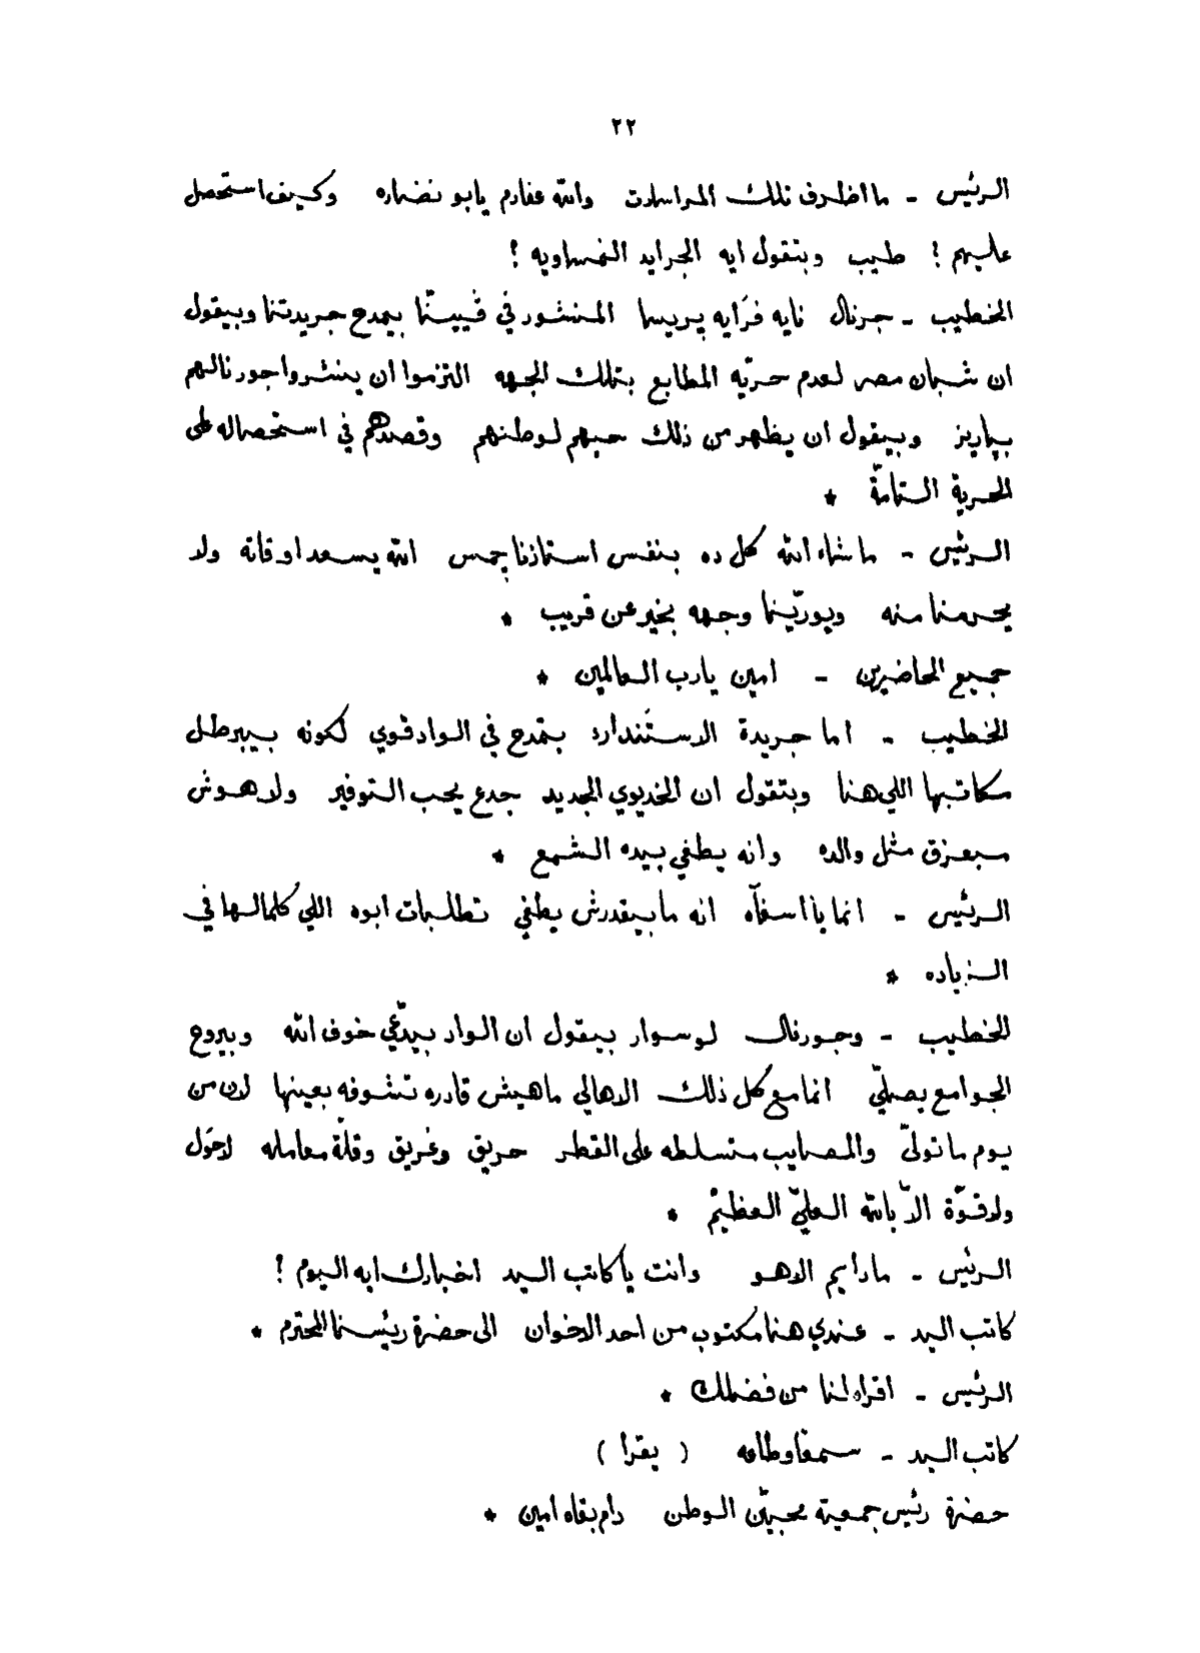 ٢٢
الرئيس - ما اظرف تلك المراسلات والله عفارم يابو نضاره وكيف استحصل
عليهم ! طيب وبتقول ايه الجرايد النمساويه ؟
الخطيب - جرنال نايه فرَايه پريسا المنشور في ڤيينّا بيمدح جريدتنا وبيقول
ان شبان مصر لعدم حريّه المطابع بتلك الجهه التزموا ان ينشروا جورنالهم
بپاريز وبيقول ان يظهر من ذلك حبهم لوطنهم وقصدهم في استحصاله على
الحرية التامّة *
الرئيس - ما شاء الله كل ده بنفس استاذنا چمس الله يسعد اوقاته ولا
يحرمنا منه ويورّينا وجهه بخير عن قريب *
جميع الحاضرين - امين يارب العالمين *
الخطيب - اما جريدة الاستَندارد بتمدح في الواد قوي لكونه بيبرطل
مكاتبها اللي هنا وبتقول ان الخديوي الجديد جدع يحب التوفير ولا هوش
مبعزق مثل والده وانه يطفي بيده الشمع *
الرئيس - انما يا اسفاّه انه مابيقدرش يطفي تطلبات ابوه اللي كلمالها في
الزياده *
الخطيب - وجورنال لوسوار بيقول ان الواد بيدّعي خوف الله وبيروح
الجوامع يصلّي انما مع كل ذلك الاهالي ماهيش قادره تشوفه بعينها لان من
يوم ما تولّى والمصايب متسلطه على القطر حريق وغريق وقلّة معامله لاحَول
ولاقوّة الاّ بالله العليّ العظيم *
الرئيس - مادايم الاهو وانت يا كاتب السيد اخبارك ايه اليوم ؟
كاتب السيد - عندي هنا مكتوب من احد الاخوان الى حضرة رئيسنا المحترم *
الرئيس - اقراه لنا من فضلك *
كاتب السيد - سمعًا وطاعه ( يقرأ )
حضرة رئيس جمعية محبيّن الوطن دام بقاه امين *